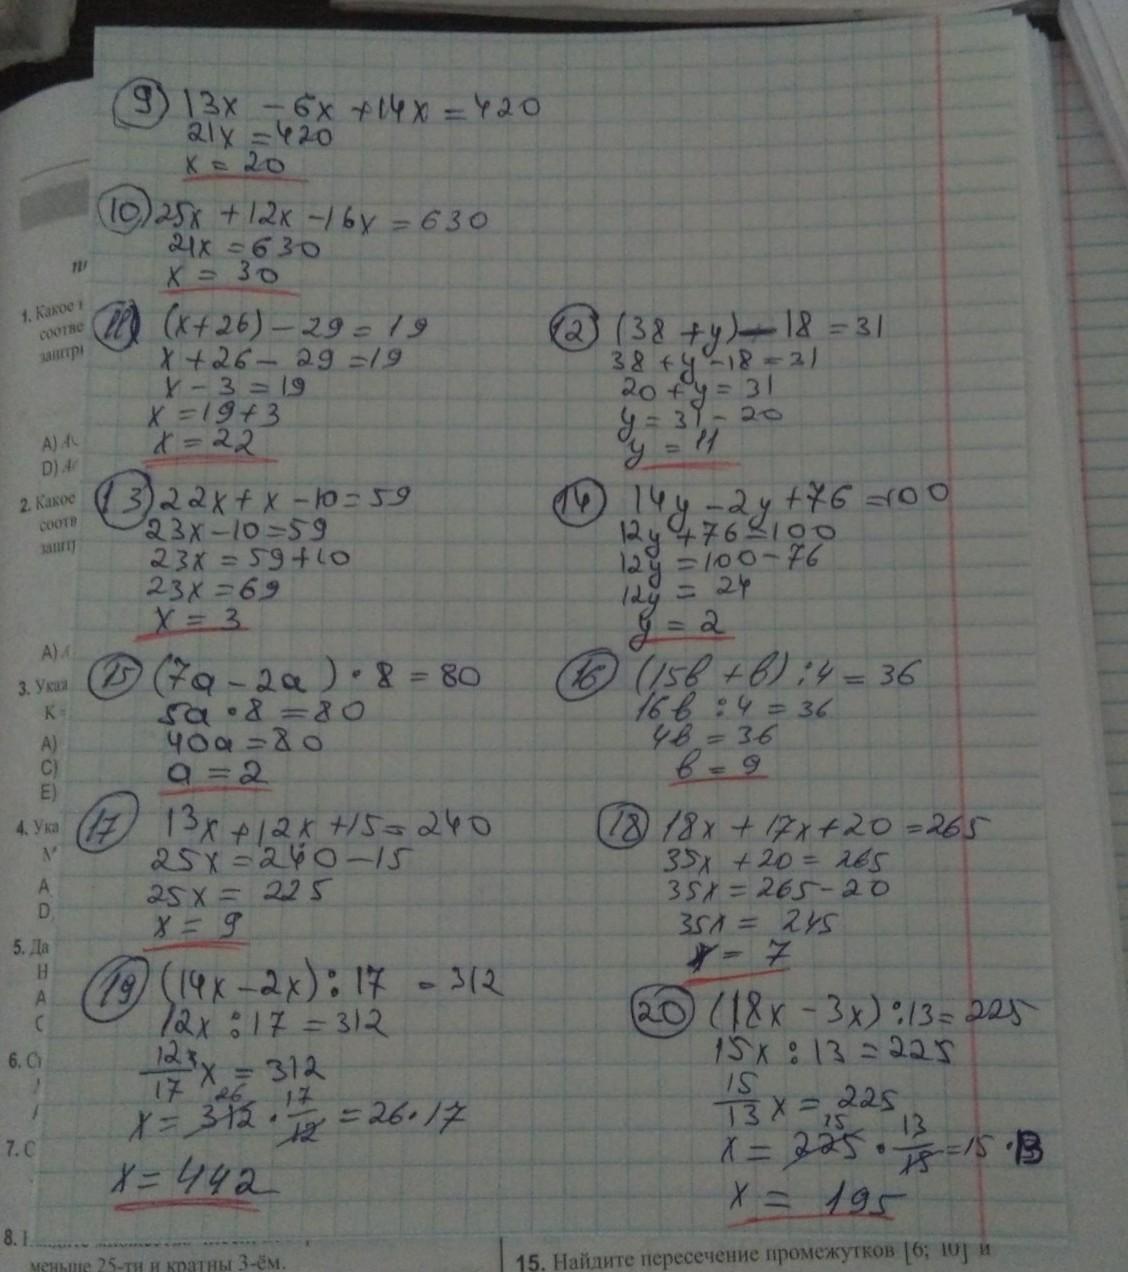 9) 13x - 6x + 14x = 420
21x = 420
x = 20
10) 25x + 12x - 16x = 630
21x = 630
x = 30
11) (x+26) - 29 = 19
x + 26 - 29 = 19
x - 3 = 19
x = 19 + 3
x = 22
12) (38 + y) - 18 = 31
38 + y - 18 = 31
20 + y = 31
y = 31 - 20
y = 11
13) 22x + x - 10 = 59
23x - 10 = 59
23x = 59 + 10
23x = 69
x = 3
14) 14y - 2y + 76 = 100
12y + 76 = 100
12y = 100 - 76
12y = 24
y = 2
15) (7a - 2a) · 8 = 80
5a · 8 = 80
40a = 80
a = 2
16) (15b + b) : 4 = 36
16b : 4 = 36
4b = 36
b = 9
17) 13x + 12x + 15 = 240
25x = 240 - 15
25x = 225
x = 9
18) 18x + 17x + 20 = 265
35x + 20 = 265
35x = 265 - 20
35x = 245
x = 7
19) (14x - 2x) : 17 = 312
12x : 17 = 312
12/17 x = 312
x = 312 · 17/12 = 26 · 17
26
x = 442
20) (18x - 3x) : 13 = 225
15x : 13 = 225
15/13 x = 225
x = 225 · 13/15 = 15 · 13
15
x = 195
1. Какое
соотве
заштри
A)
D)
2. Какое
соотв
заштр
A)
3. Указ
K =
A)
C)
E)
4. Ука
A
D
5. Да
Н
A
C
6.
7. С
8.
меньше 25-ти и кратны 3-ём.
15. Найдите пересечение промежутков [6; 10] и